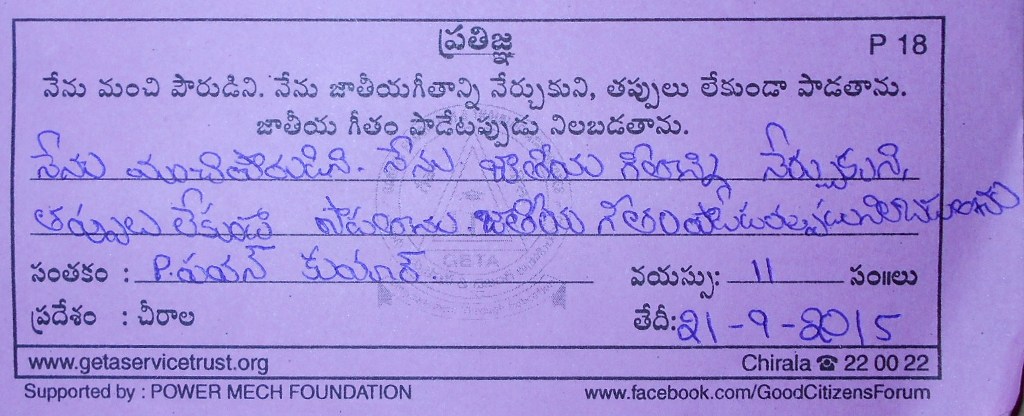 ప్రతిజ్ఞ P 18
నేను మంచి పౌరుడిని. నేను జాతీయగీతాన్ని నేర్చుకుని, తప్పులు లేకుండా పాడతాను.
జాతీయ గీతం పాడేటప్పుడు నిలబడతాను.
నేను మంచిపౌరుడిని. నేను జాతీయ గీతాన్ని నేర్చుకుని,
తప్పులు లేకుండా పాడతాను. జాతీయ గీతం పాడేటప్పుడు నిలబడతాను
సంతకం : P. పవన్ కుమార్ వయస్సు: 11 సం॥లు
ప్రదేశం : చీరాల తేదీ: 21-9-2015
www.getaservicetrust.org Chirala ☎ 22 00 22
Supported by : POWER MECH FOUNDATION www.facebook.com/GoodCitizensForum
GETA